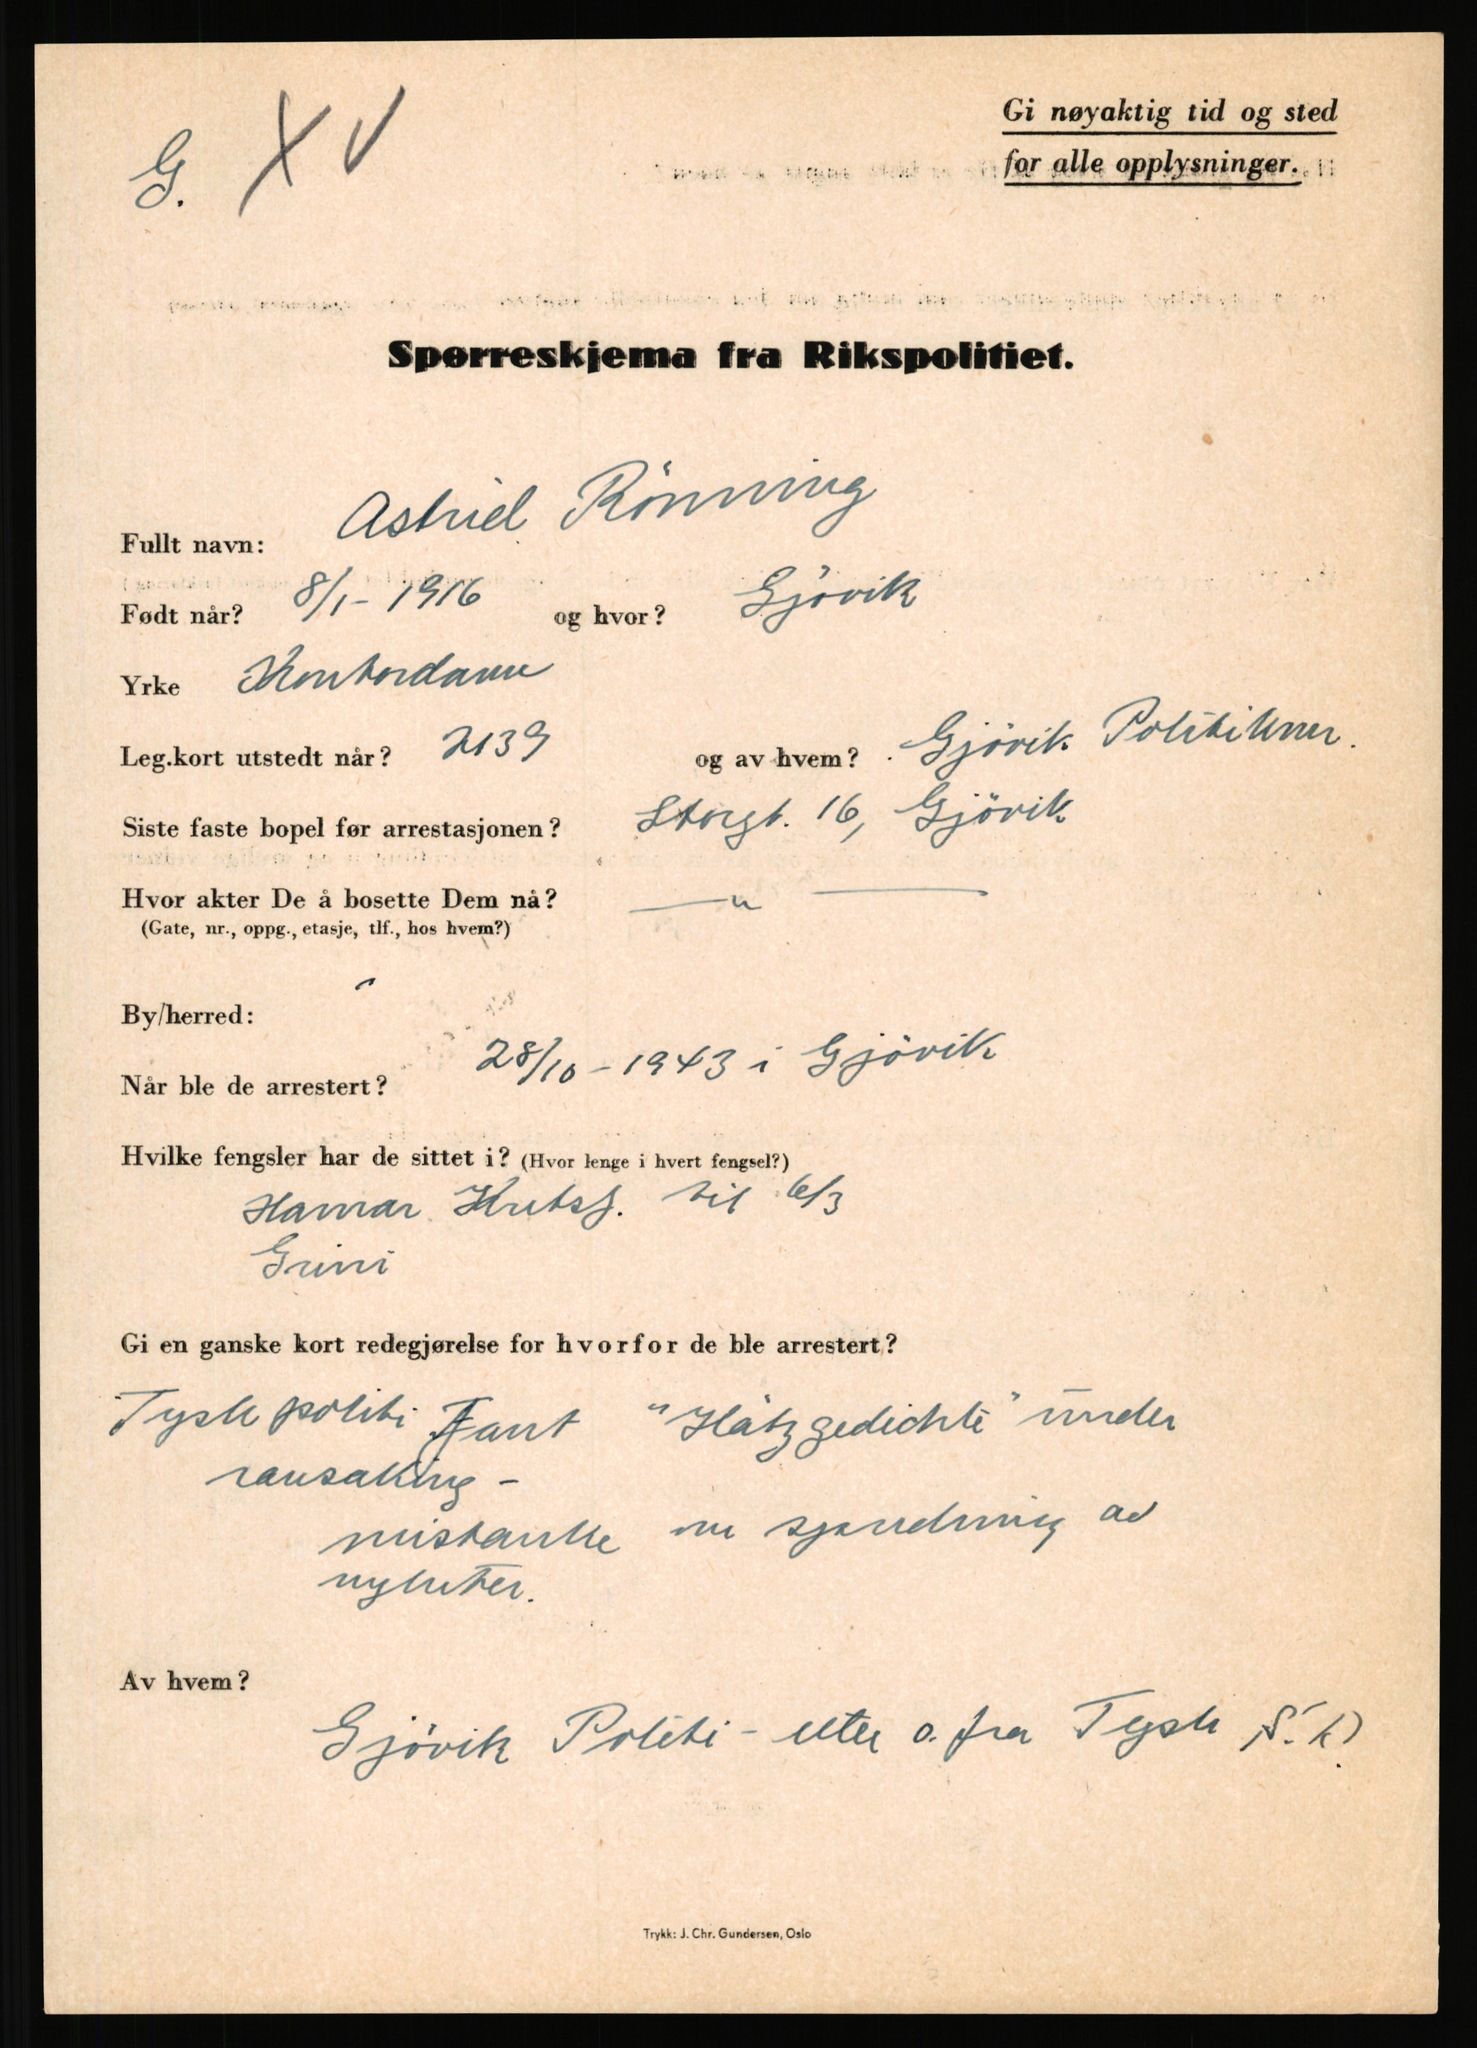 G. X V
Gi nøyaktig tid og sted
for alle opplysninger.
Spørreskjema fra Rikspolitiet.
Fullt navn: Astrid Rönning
Født når? 8/1 - 1916 og hvor? Gjövik
Yrke Kontordame
Leg.kort utstedt når? 2139 og av hvem? Gjövik Politikmr.
Siste faste bopel før arrestasjonen? Storgt. 16, Gjövik
Hvor akter De å bosette Dem nå? — " —
(Gate, nr., oppg., etasje, tlf., hos hvem?)
By/herred:
Når ble de arrestert? 28/10 - 1943 i Gjövik
Hvilke fengsler har de sittet i? (Hvor lenge i hvert fengsel?)
Hamar Kretsf. til 6/3
Grini
Gi en ganske kort redegjørelse for hvorfor de ble arrestert?
Tysk politi Fant "Hätzgedichte" under
ransaking -
mistanke om spredning av
nyheter.
Av hvem?
Gjövik Politi - etter o. fra Tysk
Trykk: J. Chr. Gundersen, Oslo